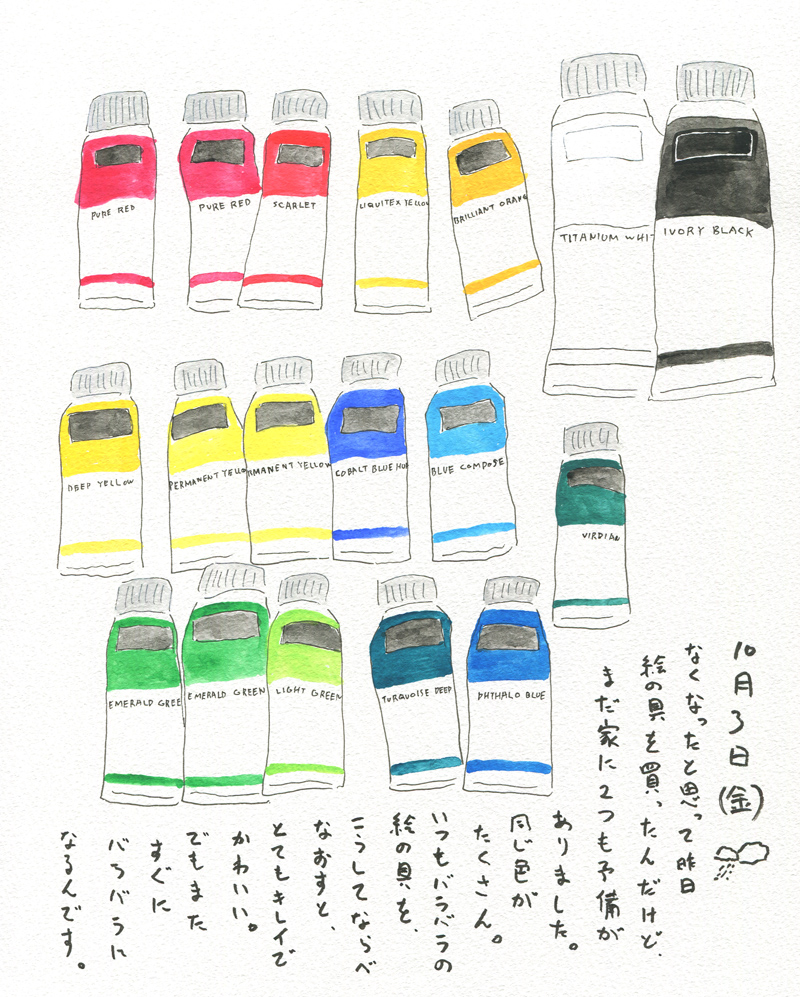 PURE RED
PURE RED
SCARLET
LIQUITEX YELLOW
BRILLIANT ORANG
TITANIUM WHI
IVORY BLACK
DEEP YELLOW
PERMANENT YELLO
RMANENT YELLOW
COBALT BLUE HUE
BLUE COMPOSE
VIRDIAN
EMERALD GREE
EMERALD GREEN
LIGHT GREEN
TURQUOISE DEEP
PHTHALO BLUE
10月3日(金)
なくなったと思って昨日
絵の具を買ったんだけど、
まだ家に2つも予備が
ありました。
同じ色が
たくさん。
いつもバラバラの
絵の具を、
こうしてならべ
なおすと、
とてもキレイで
かわいい。
でもまた
すぐに
バラバラに
なるんです。